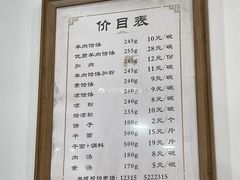 价目表
羊肉饸饹 245g 10元/碗
优质羊肉饸饹 255g 28元/碗
加肉 245g 12元/碗
羊肉饸饹加粉 245g 11元/碗
素饸饹 245g 9元/碗
凉饸饹 240g 9元/碗
凉粉 240g 8元/碗
烩凉粉 240g 8元/碗
饼子 100g 2元/个
干面 500g 15元/斤
干面+调料 500g 19元/斤
肉汤 240g 5元/碗
素汤 170g 5元/碗
12315 5222315